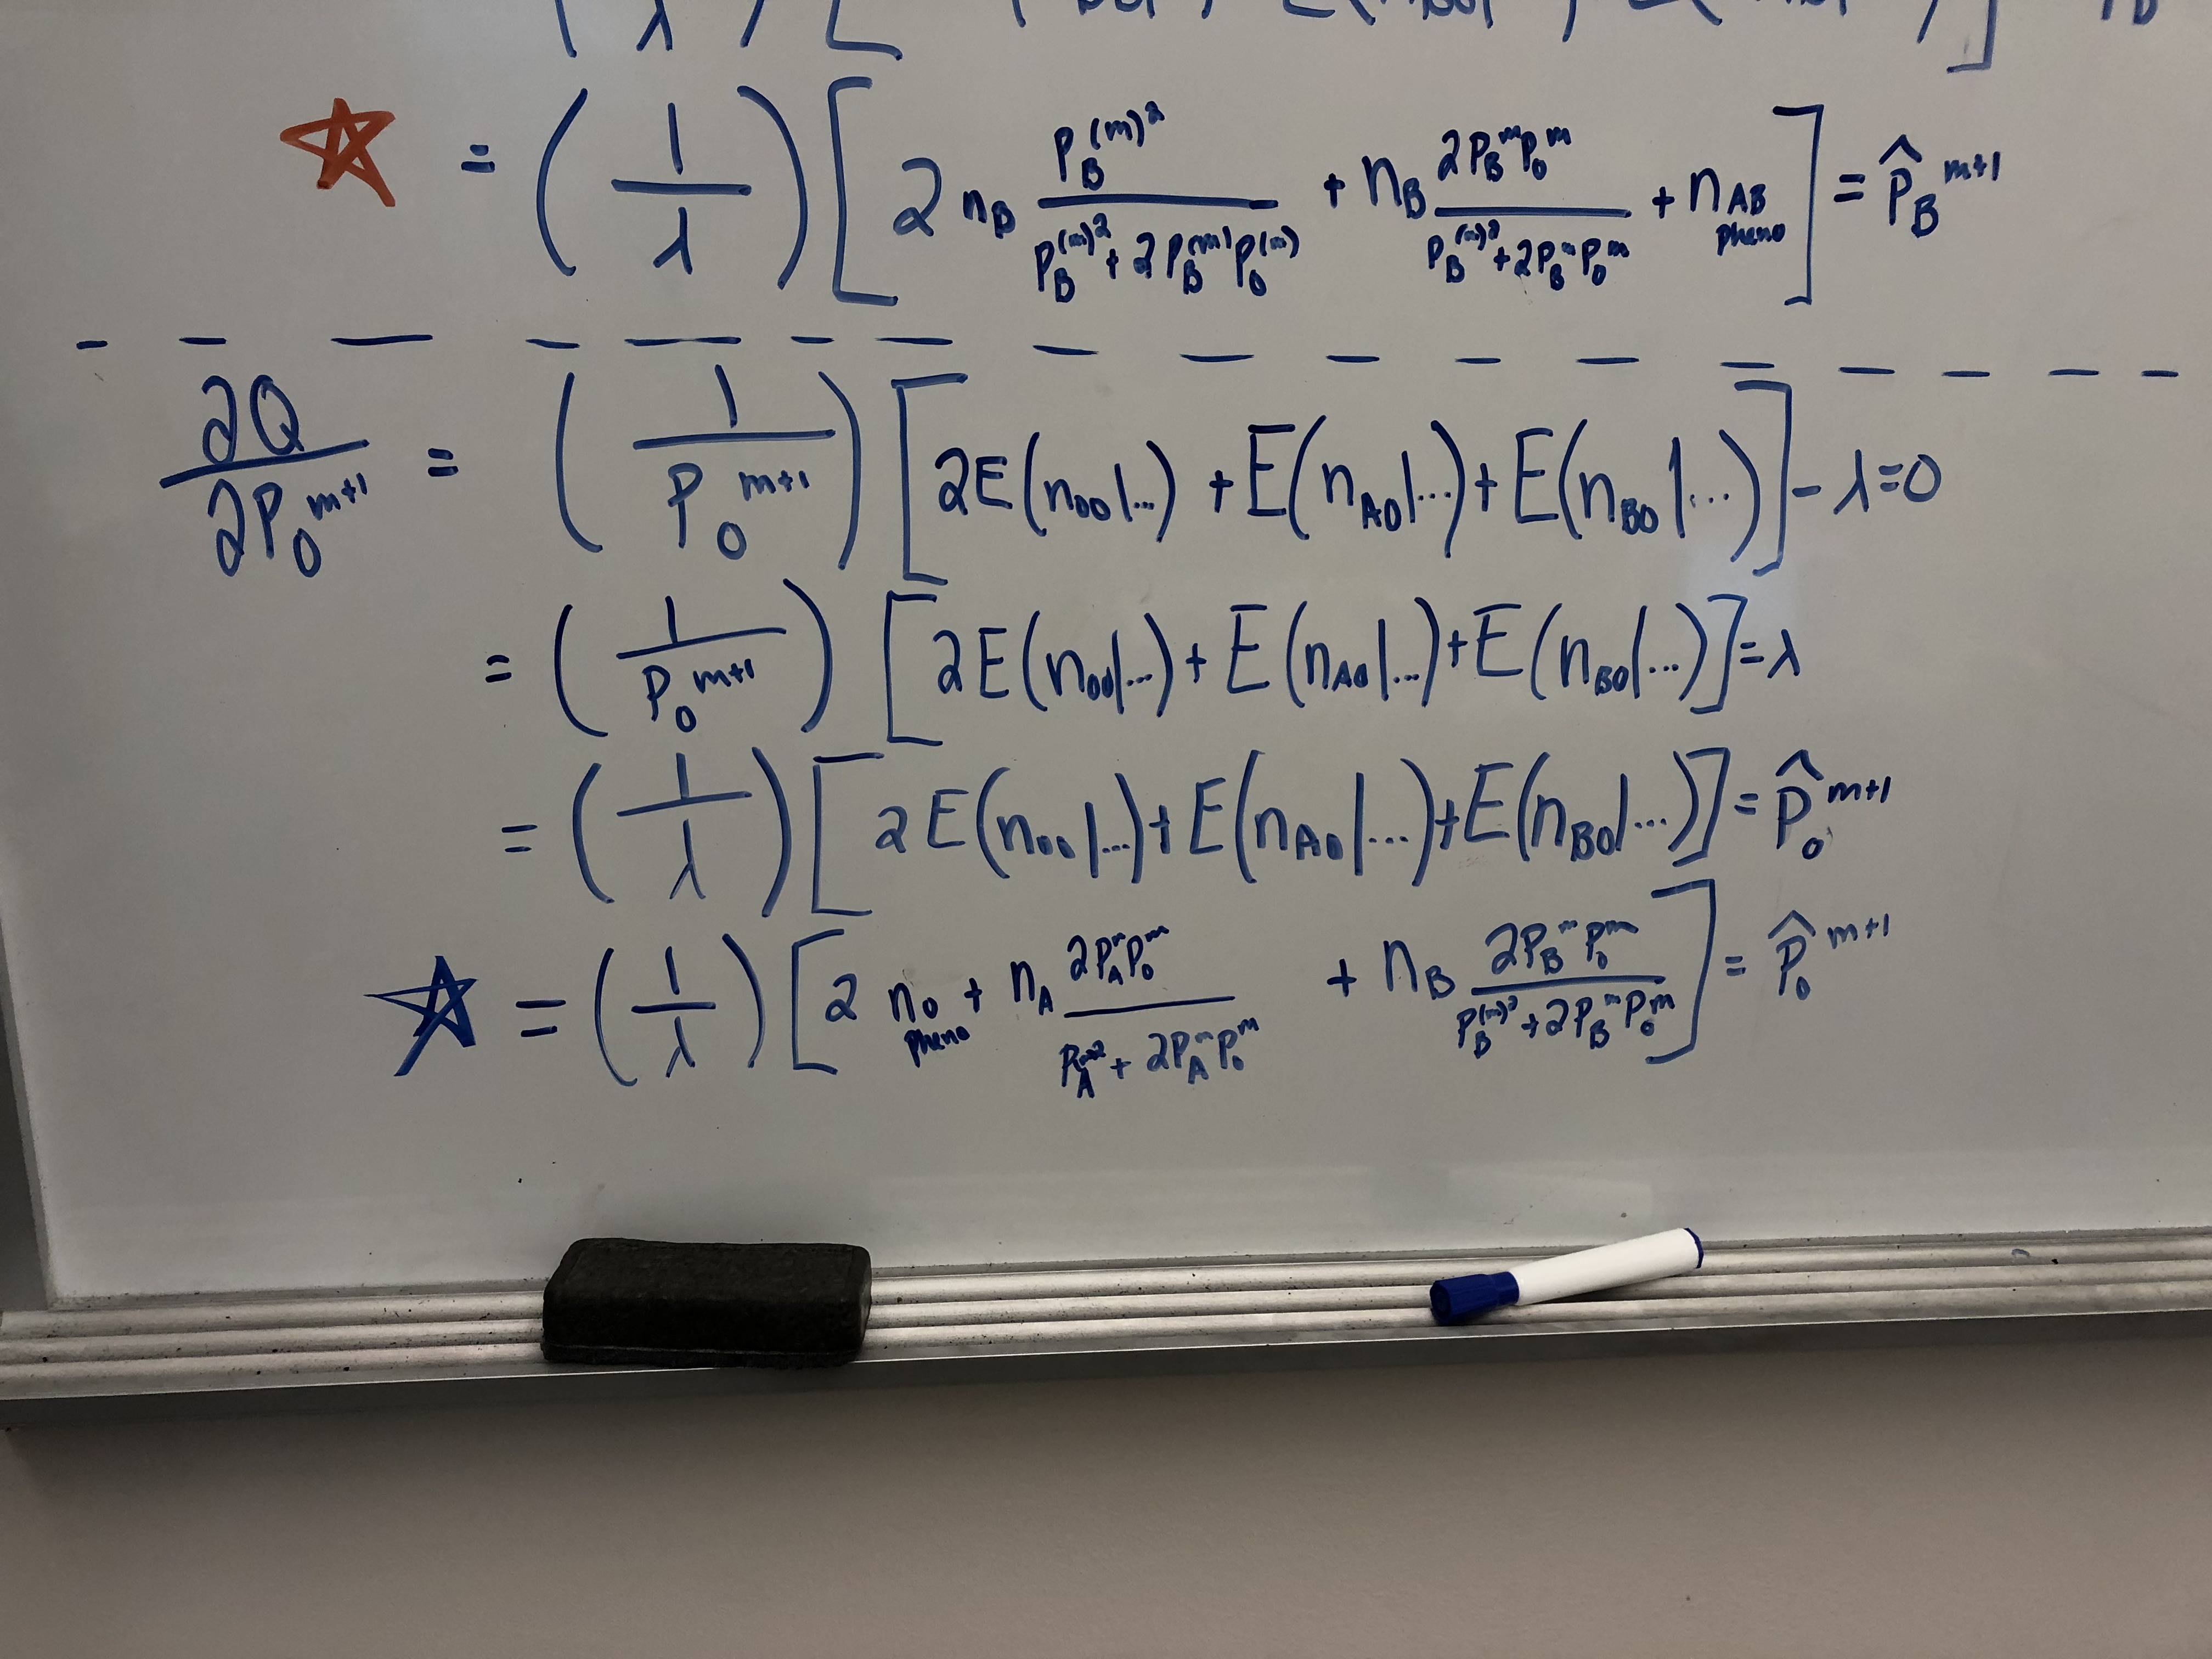 = (1/λ) [ 2 n_B P_B^(m)² / (P_B^(m)² + 2P_B^(m) P_0^(m)) + n_B 2P_B^m P_0^m / (P_B^(m)² + 2P_B^m P_0^m) + n_AB pheno ] = P̂_B^m+1
∂Q/∂P_0^m+1 = (1/P_0^m+1) [ 2E(n_00|...) + E(n_A0|...) + E(n_B0|...) ] - λ = 0
= (1/P_0^m+1) [ 2E(n_00|...) + E(n_A0|...) + E(n_B0|...) ] = λ
= (1/λ) [ 2E(n_00|...) + E(n_A0|...) + E(n_B0|...) ] = P̂_0^m+1
= (1/λ) [ 2 n_0 pheno + n_A 2P_A^m P_0^m / (P_A^m2 + 2P_A^m P_0^m) + n_B 2P_B^m P_0^m / (P_B^(m)² + 2P_B^m P_0^m) ] = P̂_0^m+1